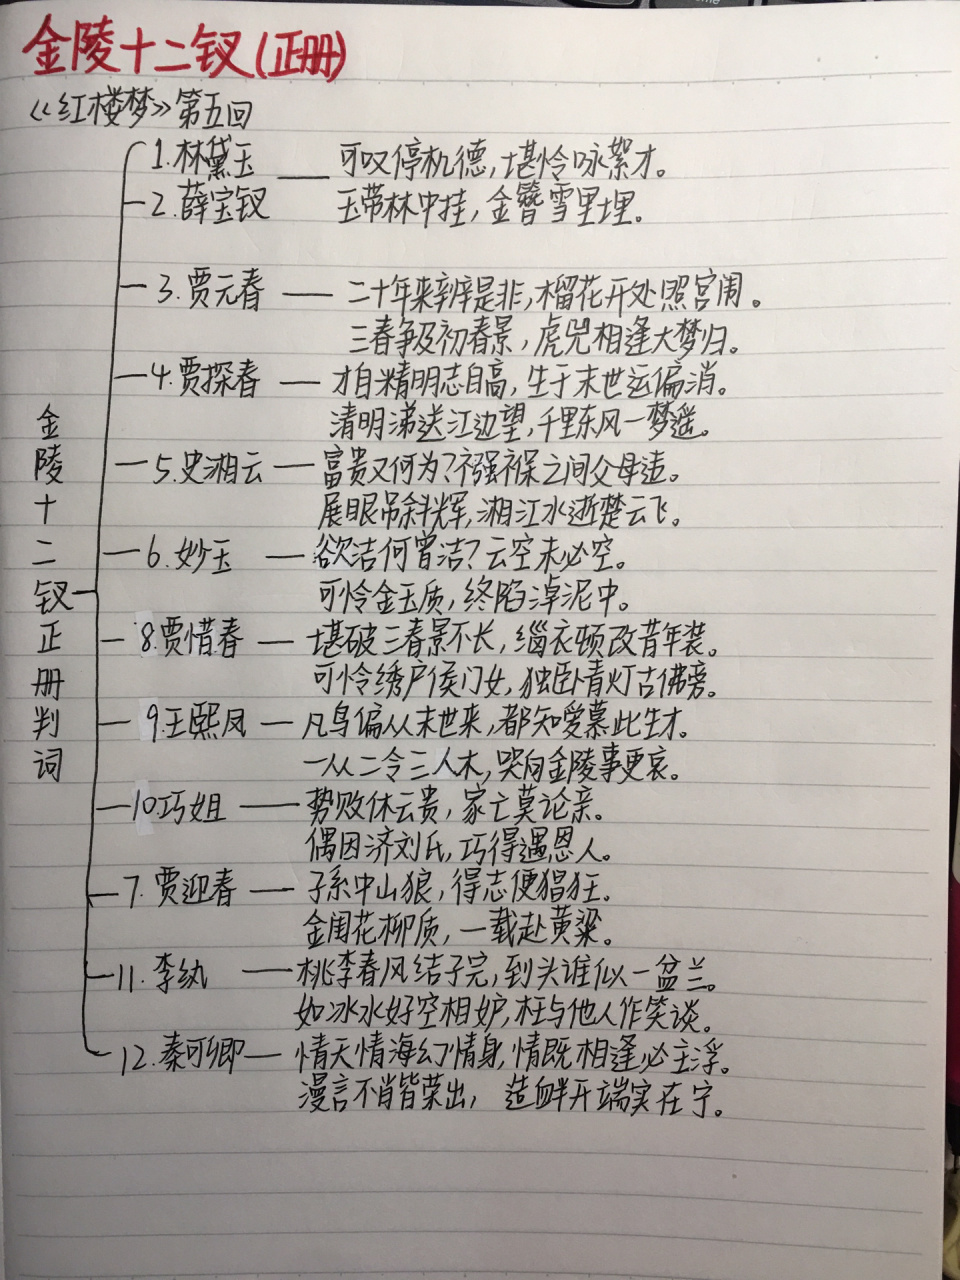 金陵十二钗(正册)
《红楼梦》第五回
金陵十二钗正册判词
1.林黛玉 —— 可叹停机德，堪怜咏絮才。
2.薛宝钗 玉带林中挂，金簪雪里埋。
3.贾元春 —— 二十年来辨是非，榴花开处照宫闱。
三春争及初春景，虎兕相逢大梦归。
4.贾探春 —— 才自精明志自高，生于末世运偏消。
清明涕送江边望，千里东风一梦遥。
5.史湘云 —— 富贵又何为？襁褓之间父母违。
展眼吊斜辉，湘江水逝楚云飞。
6.妙玉 —— 欲洁何曾洁？云空未必空。
可怜金玉质，终陷淖泥中。
8.贾惜春 —— 堪破三春景不长，缁衣顿改昔年装。
可怜绣户侯门女，独卧青灯古佛旁。
9.王熙凤 —— 凡鸟偏从末世来，都知爱慕此生才。
一从二令三人木，哭向金陵事更哀。
10.巧姐 —— 势败休云贵，家亡莫论亲。
偶因济刘氏，巧得遇恩人。
7.贾迎春 —— 子系中山狼，得志便猖狂。
金闺花柳质，一载赴黄粱。
11.李纨 —— 桃李春风结子完，到头谁似一盆兰。
如冰水好空相妒，枉与他人作笑谈。
12.秦可卿 —— 情天情海幻情身，情既相逢必主淫。
漫言不肖皆荣出，造衅开端实在宁。